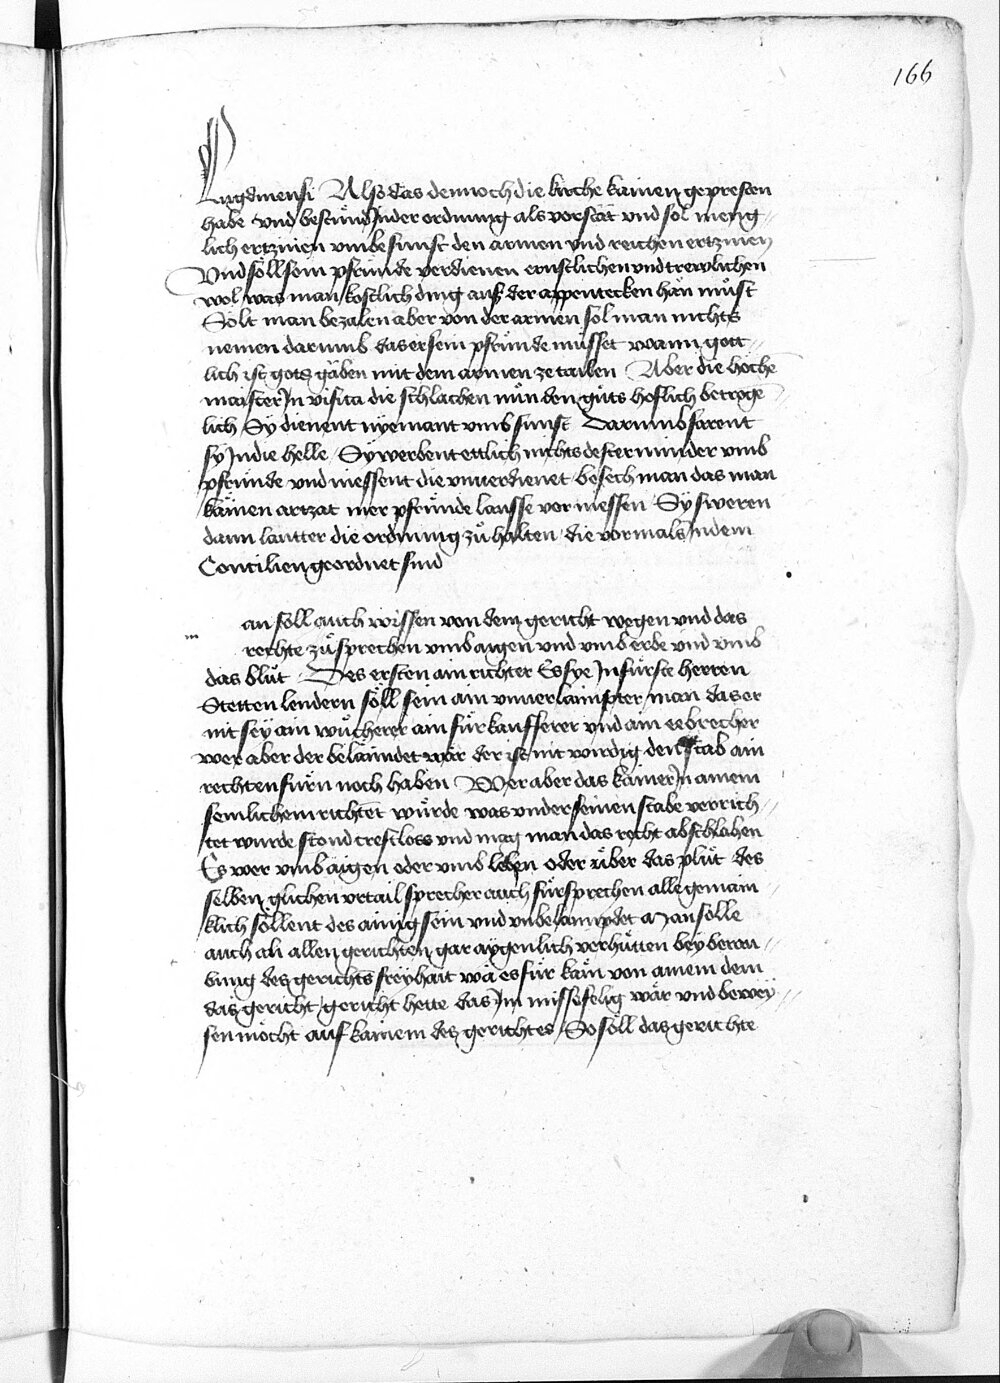 166
Lugdinensi Also das dennoch die kirche kainen gepresten
habe vnd bestund Jn der ordnung als vorstat vnd sol menig
lich ertznien vmbe sunst den armen vnd reichen ertznien
Vnd soll sein pfrunde verdienen ernstlichen vnd trewlichen
wol was man kostlich ding auß der appentecken han must
Solt man bezalen aber von der armen sol man nichts
nemen darumb das er sein pfrunde nusset wann gott
lich ist gots gaben mit dem armen ze tailen Aber die hoche
maister Jn visica die schlachen nun den guts hoflich betroge
lich Sy dienent nyemant vmb sunst Darumb farent
sy Jn die helle Sy werbent ettlich nichts dester minder vmb
pfrunde vnd niessent die vnuerdienet besech man das man
kainen artzat mer pfrunde lausse vor niessen Sy sweren
dann lautter die ordnung zu halten die vormals Jn dem
Concilien geordnet sind
an soll auch wissen von dem gericht wegen vnd das
rechte zu sprechen vmb aigen vnd vmb erbe vnd vmb
das blut Des ersten ain richter Es sye Jn furste herren
Stetten lendern soll sein ain vnuerlaimpter man das er
nit sey ain wucherer ain furkaufferer vnd ain eebrecher
wer aber der belaundet war der ist nit wirdig den stab ain
rechten furn noch haben Wer aber das kainer Jn ainem
semlichem richtet wurde was vnder seinen stabe verrich
tet wurde stond crestloss vnd mag man das recht abschlahen
Es wer vmb aigen oder vmb leben oder uber das plut des
selben glichen vrtail sprecher auch fursprechen alle gemain
klich sollent des ainig sein vnd vnbelaumdet Man solle
auch an allen gerichten gar aygenlich verhutten bey berau
bung des gerichts freyhait wa es fur kam von ainem dem
das gericht gericht hette das Jm missefelig war vnd bewey
sen mocht auf kainem des gerichtes So soll das gerichte